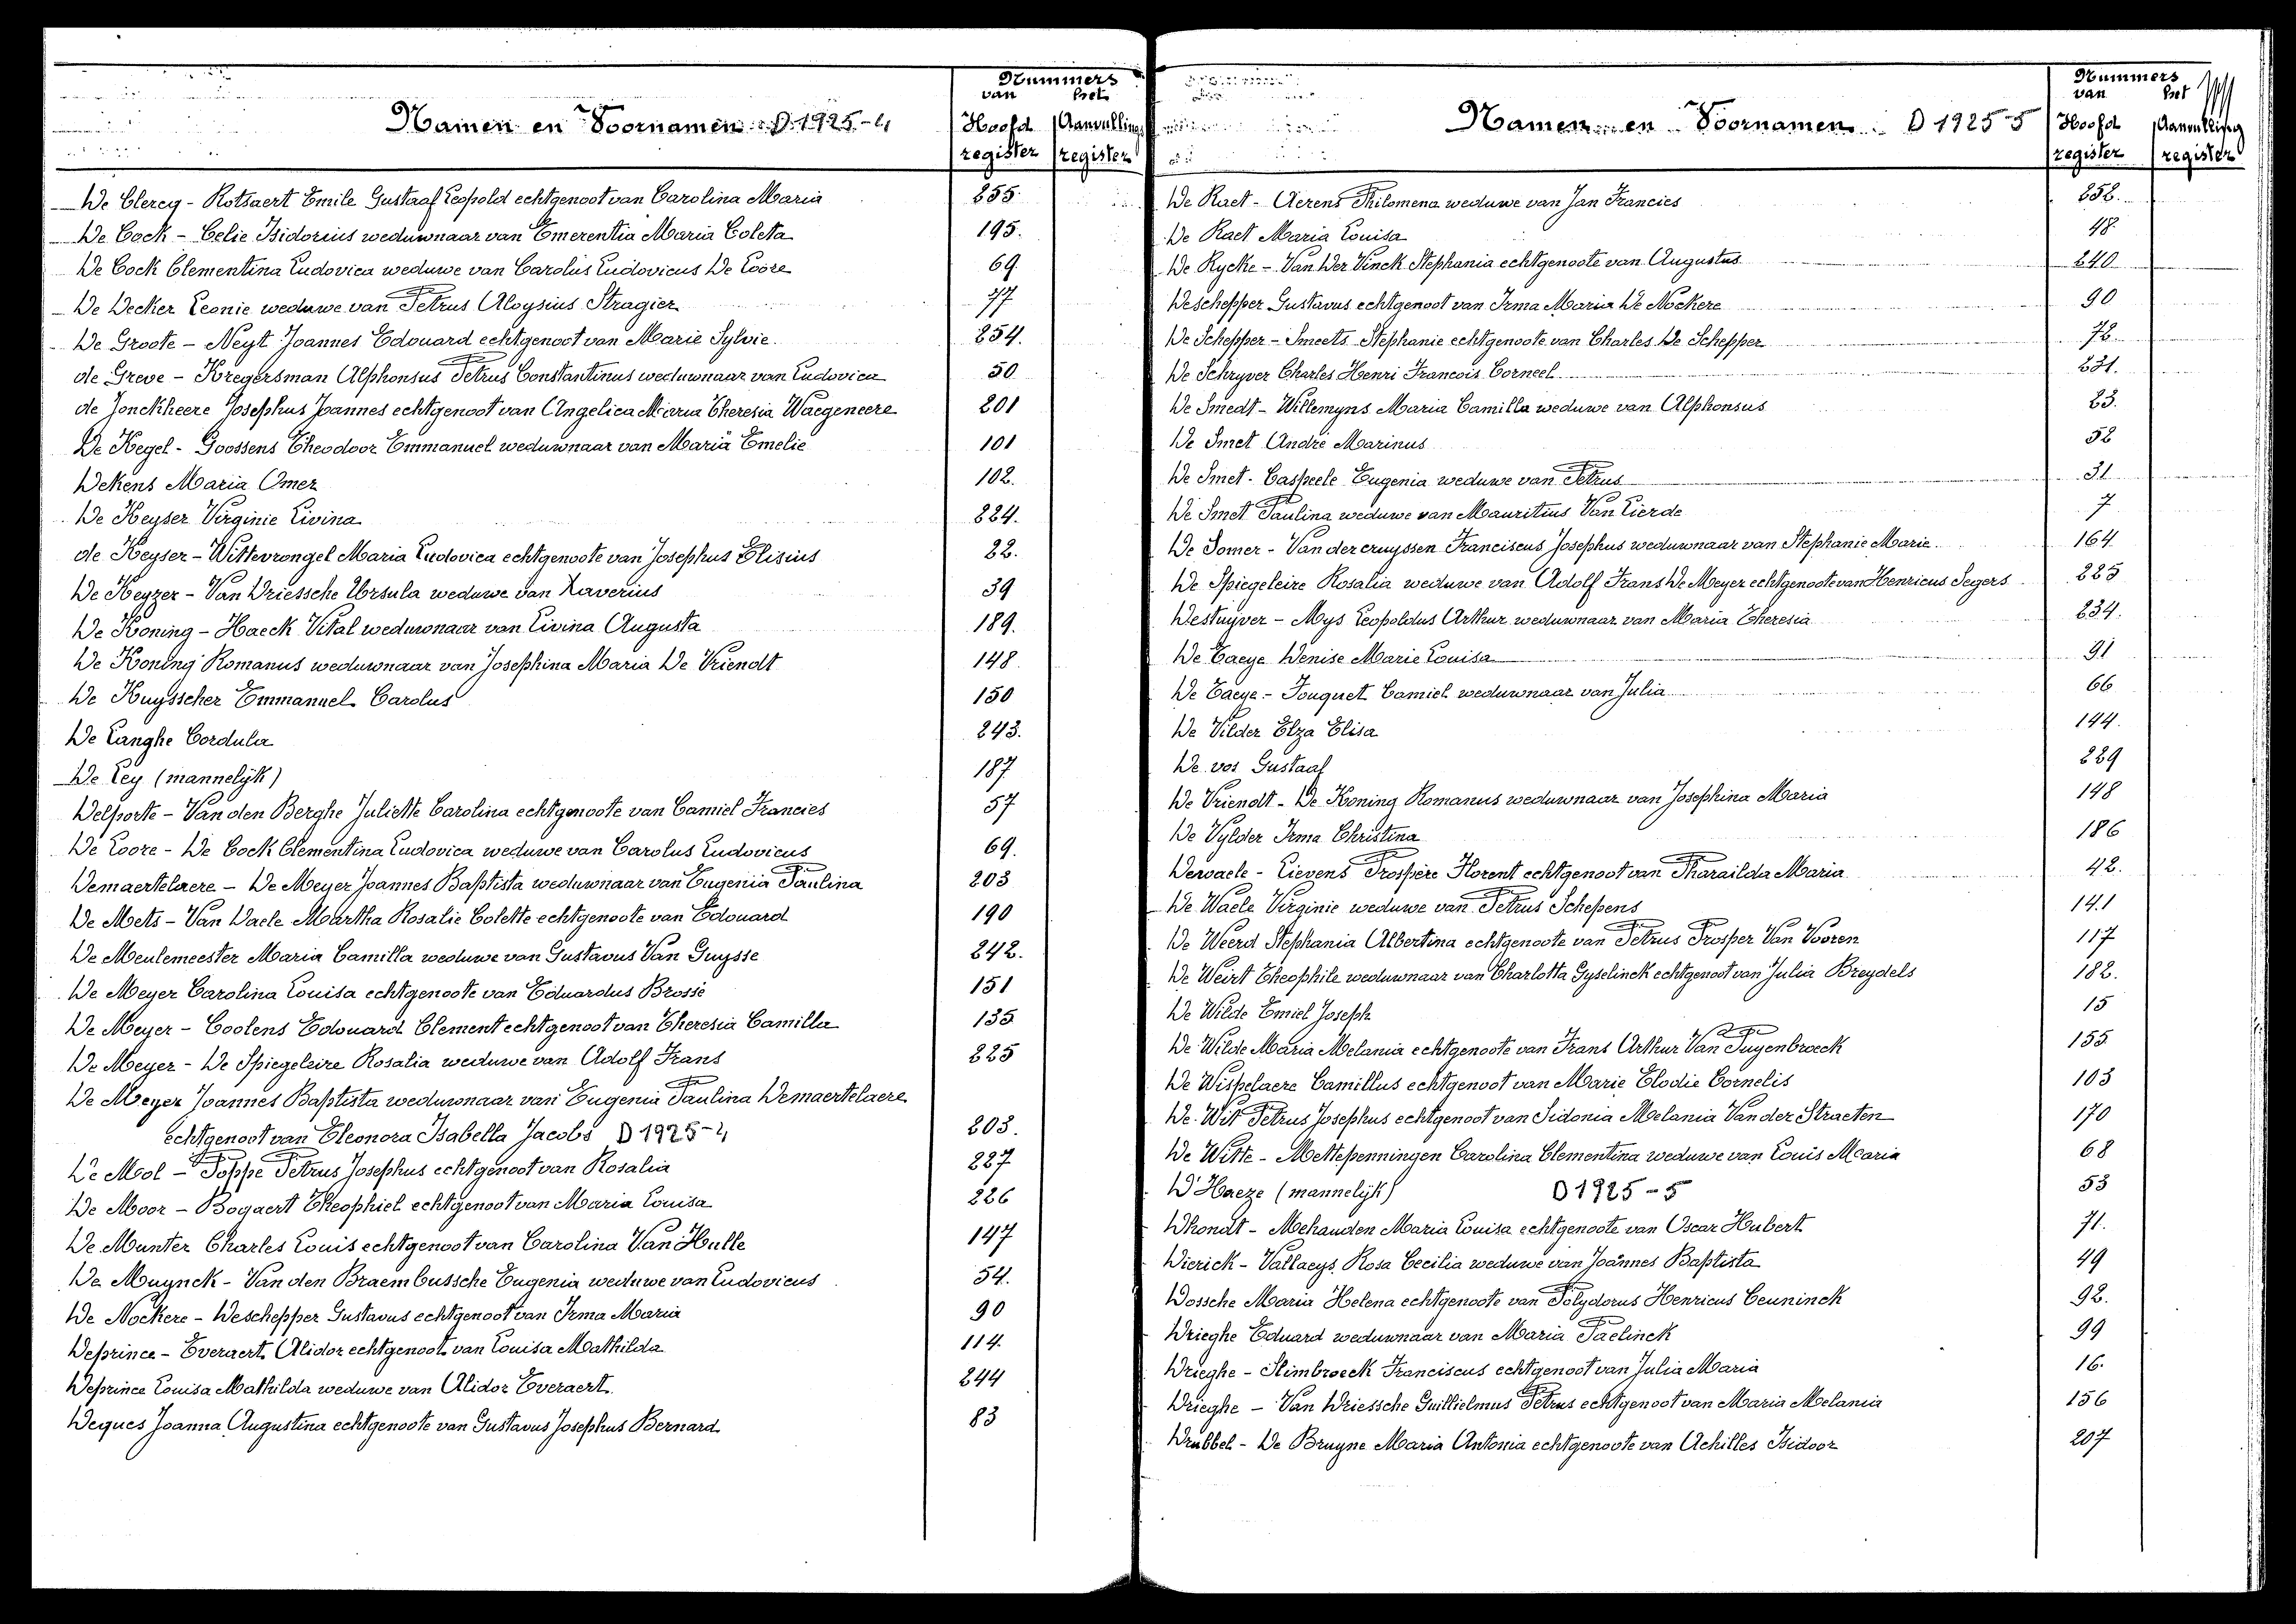 Nummers
van het
Namen en Voornamen D 1925-4
Hoofd Aanvullings
register register
De Clercq - Rotsaert Emile Gustaaf Leopold echtgenoot van Carolina Maria 255.
De Cock - Celie Isidorius weduwnaar van Emerentia Maria Coleta 195.
De Cock Clementina Ludovica weduwe van Carolus Ludovicus De Loore 69.
De Decker Leonie weduwe van Petrus Aloysius Stragier 77
De Groote - Neyt Joannes Edouard echtgenoot van Marie Sylvie. 254.
de Greve - Kregersman Alphonsus Petrus Constantinus weduwnaar van Ludovica 50
de Jonckheere Josephus Joannes echtgenoot van Angelica Maria Theresia Waegeneere 201
De Kegel - Goossens Theodoor Emmanuel weduwnaar van Maria Emelie 101
Dekens Maria Omer 102.
De Keyser Virginie Livina 224.
de Keyser - Wittevrongel Maria Ludovica echtgenoote van Josephus Elisius 22.
De Keyzer - Van Driessche Ursula weduwe van Xaverius 39
De Koning - Haeck Vital weduwnaar van Livina Augusta 189.
De Koning Romanus weduwnaar van Josephina Maria De Vriendt 148
De Kuysscher Emmanuel Carolus 150
De Langhe Cordula 243.
De Ley (mannelijk) 187
Delporte - Van den Berghe Juliette Carolina echtgenoote van Camiel Francies 57
De Loore - De Cock Clementina Ludovica weduwe van Carolus Ludovicus 69.
Demaertelaere - De Meyer Joannes Baptista weduwnaar van Eugenia Paulina 203
De Mets - Van Daele Martha Rosalie Colette echtgenoote van Edouard 190
De Meulemeester Maria Camilla weduwe van Gustavus Van Guysse 242.
De Meyer Carolina Louisa echtgenoote van Eduardus Brossé 151
De Meyer - Coolens Edouard Clement echtgenoot van Theresia Camilla 135
De Meyer - De Spiegeleire Rosalia weduwe van Adolf Frans 225
De Meyer Joannes Baptista weduwnaar van Eugenia Paulina Demaertelaere
echtgenoot van Eleonora Isabella Jacobs D 1925-4 203.
De Mol - Poppe Petrus Josephus echtgenoot van Rosalia 227
De Moor - Bogaert Theophiel echtgenoot van Maria Louisa 226
De Munter Charles Louis echtgenoot van Carolina Van Hulle 147
De Muynck - Van den Braembussche Eugenia weduwe van Ludovicus 54.
De Nockere - Deschepper Gustavus echtgenoot van Irma Maria 90
Deprince - Everaert Alidor echtgenoot van Louisa Mathilda 114.
Deprince Louisa Mathilda weduwe van Alidor Everaert. 244
Deques Joanna Augustina echtgenoote van Gustavus Josephus Bernard 83
Nummers
van het
Namen en Voornamen D 1925-5
Hoofd Aanvulling
register register
De Raet - Aerens Philomena weduwe van Jan Francies 252.
De Raet Maria Louisa 48.
De Rycke - Van Der Vinck Stephania echtgenoote van Augustus 240
Deschepper Gustavus echtgenoot van Irma Maria De Nockere 90
De Schepper - Smeets Stephanie echtgenoote van Charles De Schepper 72.
De Schryver Charles Henri Francois Corneel 231.
De Smedt - Willemyns Maria Camilla weduwe van Alphonsus 23.
De Smet André Marinus 52
De Smet - Caspeele Eugenia weduwe van Petrus 31
De Smet Paulina weduwe van Mauritius Van Lierde 7
De Somer - Van der cruyssen Franciscus Josephus weduwnaar van Stephanie Marie. 164
De Spiegeleire Rosalia weduwe van Adolf Frans De Meyer echtgenoote van Henricus Segers 225
Destuyver - Mys Leopoldus Arthur weduwnaar van Maria Theresia 234.
De Taeye Denise Marie Louisa 91
De Taeye - Fouquet Camiel weduwnaar van Julia 66
De Vilder Elza Elisa 144.
De vos Gustaaf 229
De Vriendt - De Koning Romanus weduwnaar van Josephina Maria 148
De Vylder Irma Christina 186
Dervaele - Lievens Prospère Florent echtgenoot van Pharaïlda Maria 42.
De Waele Virginie weduwe van Petrus Schepens 141
De Weerd Stephania Albertina echtgenoote van Petrus Prosper Van Vooren 117
De Weirt Theophile weduwnaar van Charlotta Gyselinck echtgenoot van Julia Breydels 182.
De Wilde Emiel Joseph 15
De Wilde Maria Melania echtgenoote van Frans Arthur Van Puyenbroeck 155.
De Wispelaere Camillus echtgenoot van Marie Elodie Cornelis 103
De Wit Petrus Josephus echtgenoot van Sidonia Melania Van der Straeten 170
De Witte - Mettepenningen Carolina Clementina weduwe van Louis Maria 68
D'Haeze (mannelijk) D 1925-5 53
Dhondt - Mehauden Maria Louisa echtgenoote van Oscar Hubert 71.
Dierick - Vallaeys Rosa Cecilia weduwe van Joannes Baptista 49
Dossche Maria Helena echtgenoote van Polydorus Henricus Ceuninck 92.
Drieghe Eduard weduwnaar van Maria Paelinck 99
Drieghe - Slimbroeck Franciscus echtgenoot van Julia Maria 16.
Drieghe - Van Driessche Guillielmus Petrus echtgenoot van Maria Melania 156
Drubbel - De Bruyne Maria Antonia echtgenoote van Achilles Isidoor 207